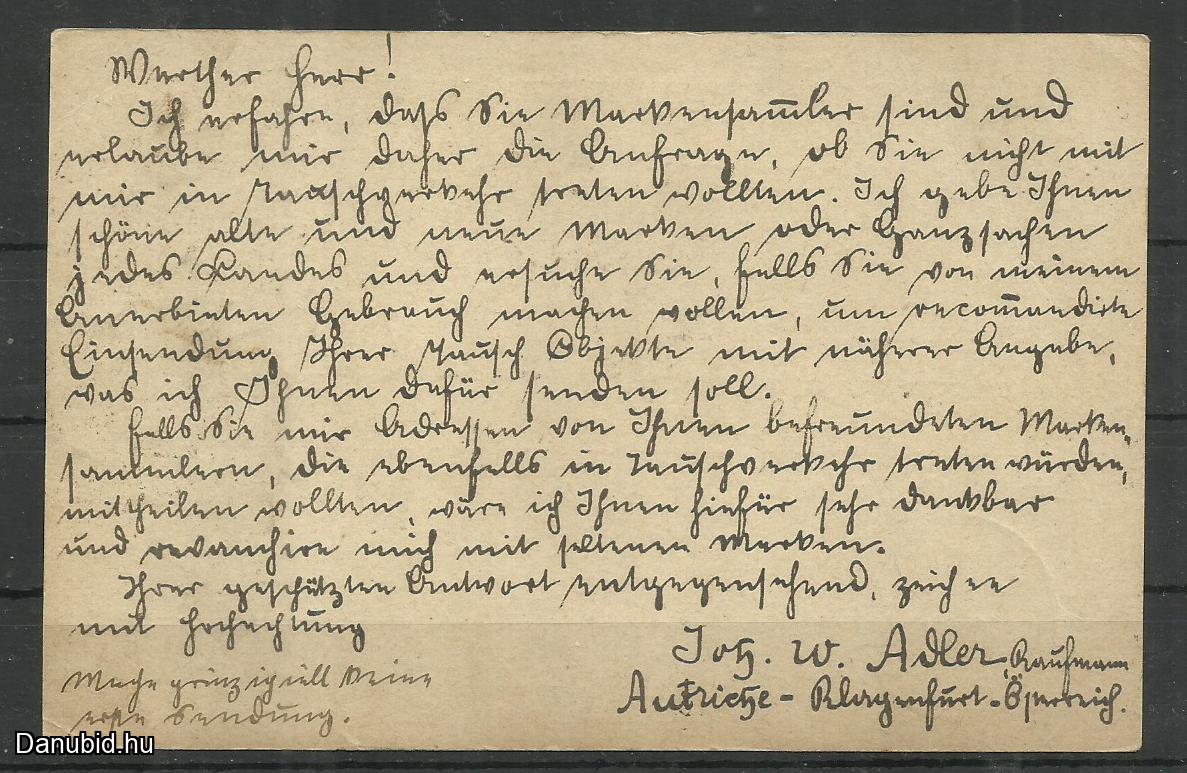 Werther Herr!
Ich erfahre, dass Sie Markensam̅ler sind und
erlaube mir daher die Anfrage, ob Sie nicht mit
mir in Tauschverkehr treten wollten. Ich gebe Ihnen
schöne alte und neue Marken oder Ganzsachen
jedes Landes und ersuche Sie, falls Sie von meinem
Anerbieten Gebrauch machen wollen, um recom̅andirte
Einsendung Ihrer Tausch Objekte mit näherer Angabe,
was ich Ihnen dafür senden soll.
Falls Sie mir Adressen von Ihnen befreundeten Marken-
sammlern, die ebenfalls in Tauschverkehr treten würden,
mittheilen wollten, wäre ich Ihnen hiefür sehr dankbar
und revanchire mich mit seltenen Marken.
Ihrer geschätzten Antwort entgegensehend, zeichne
mit Hochachtung
Joh. W. Adler, Kaufmann
Autriche - Klagenfurt - Österreich.
Mache prinzipiell keine
erste Sendung.
Danubid.hu